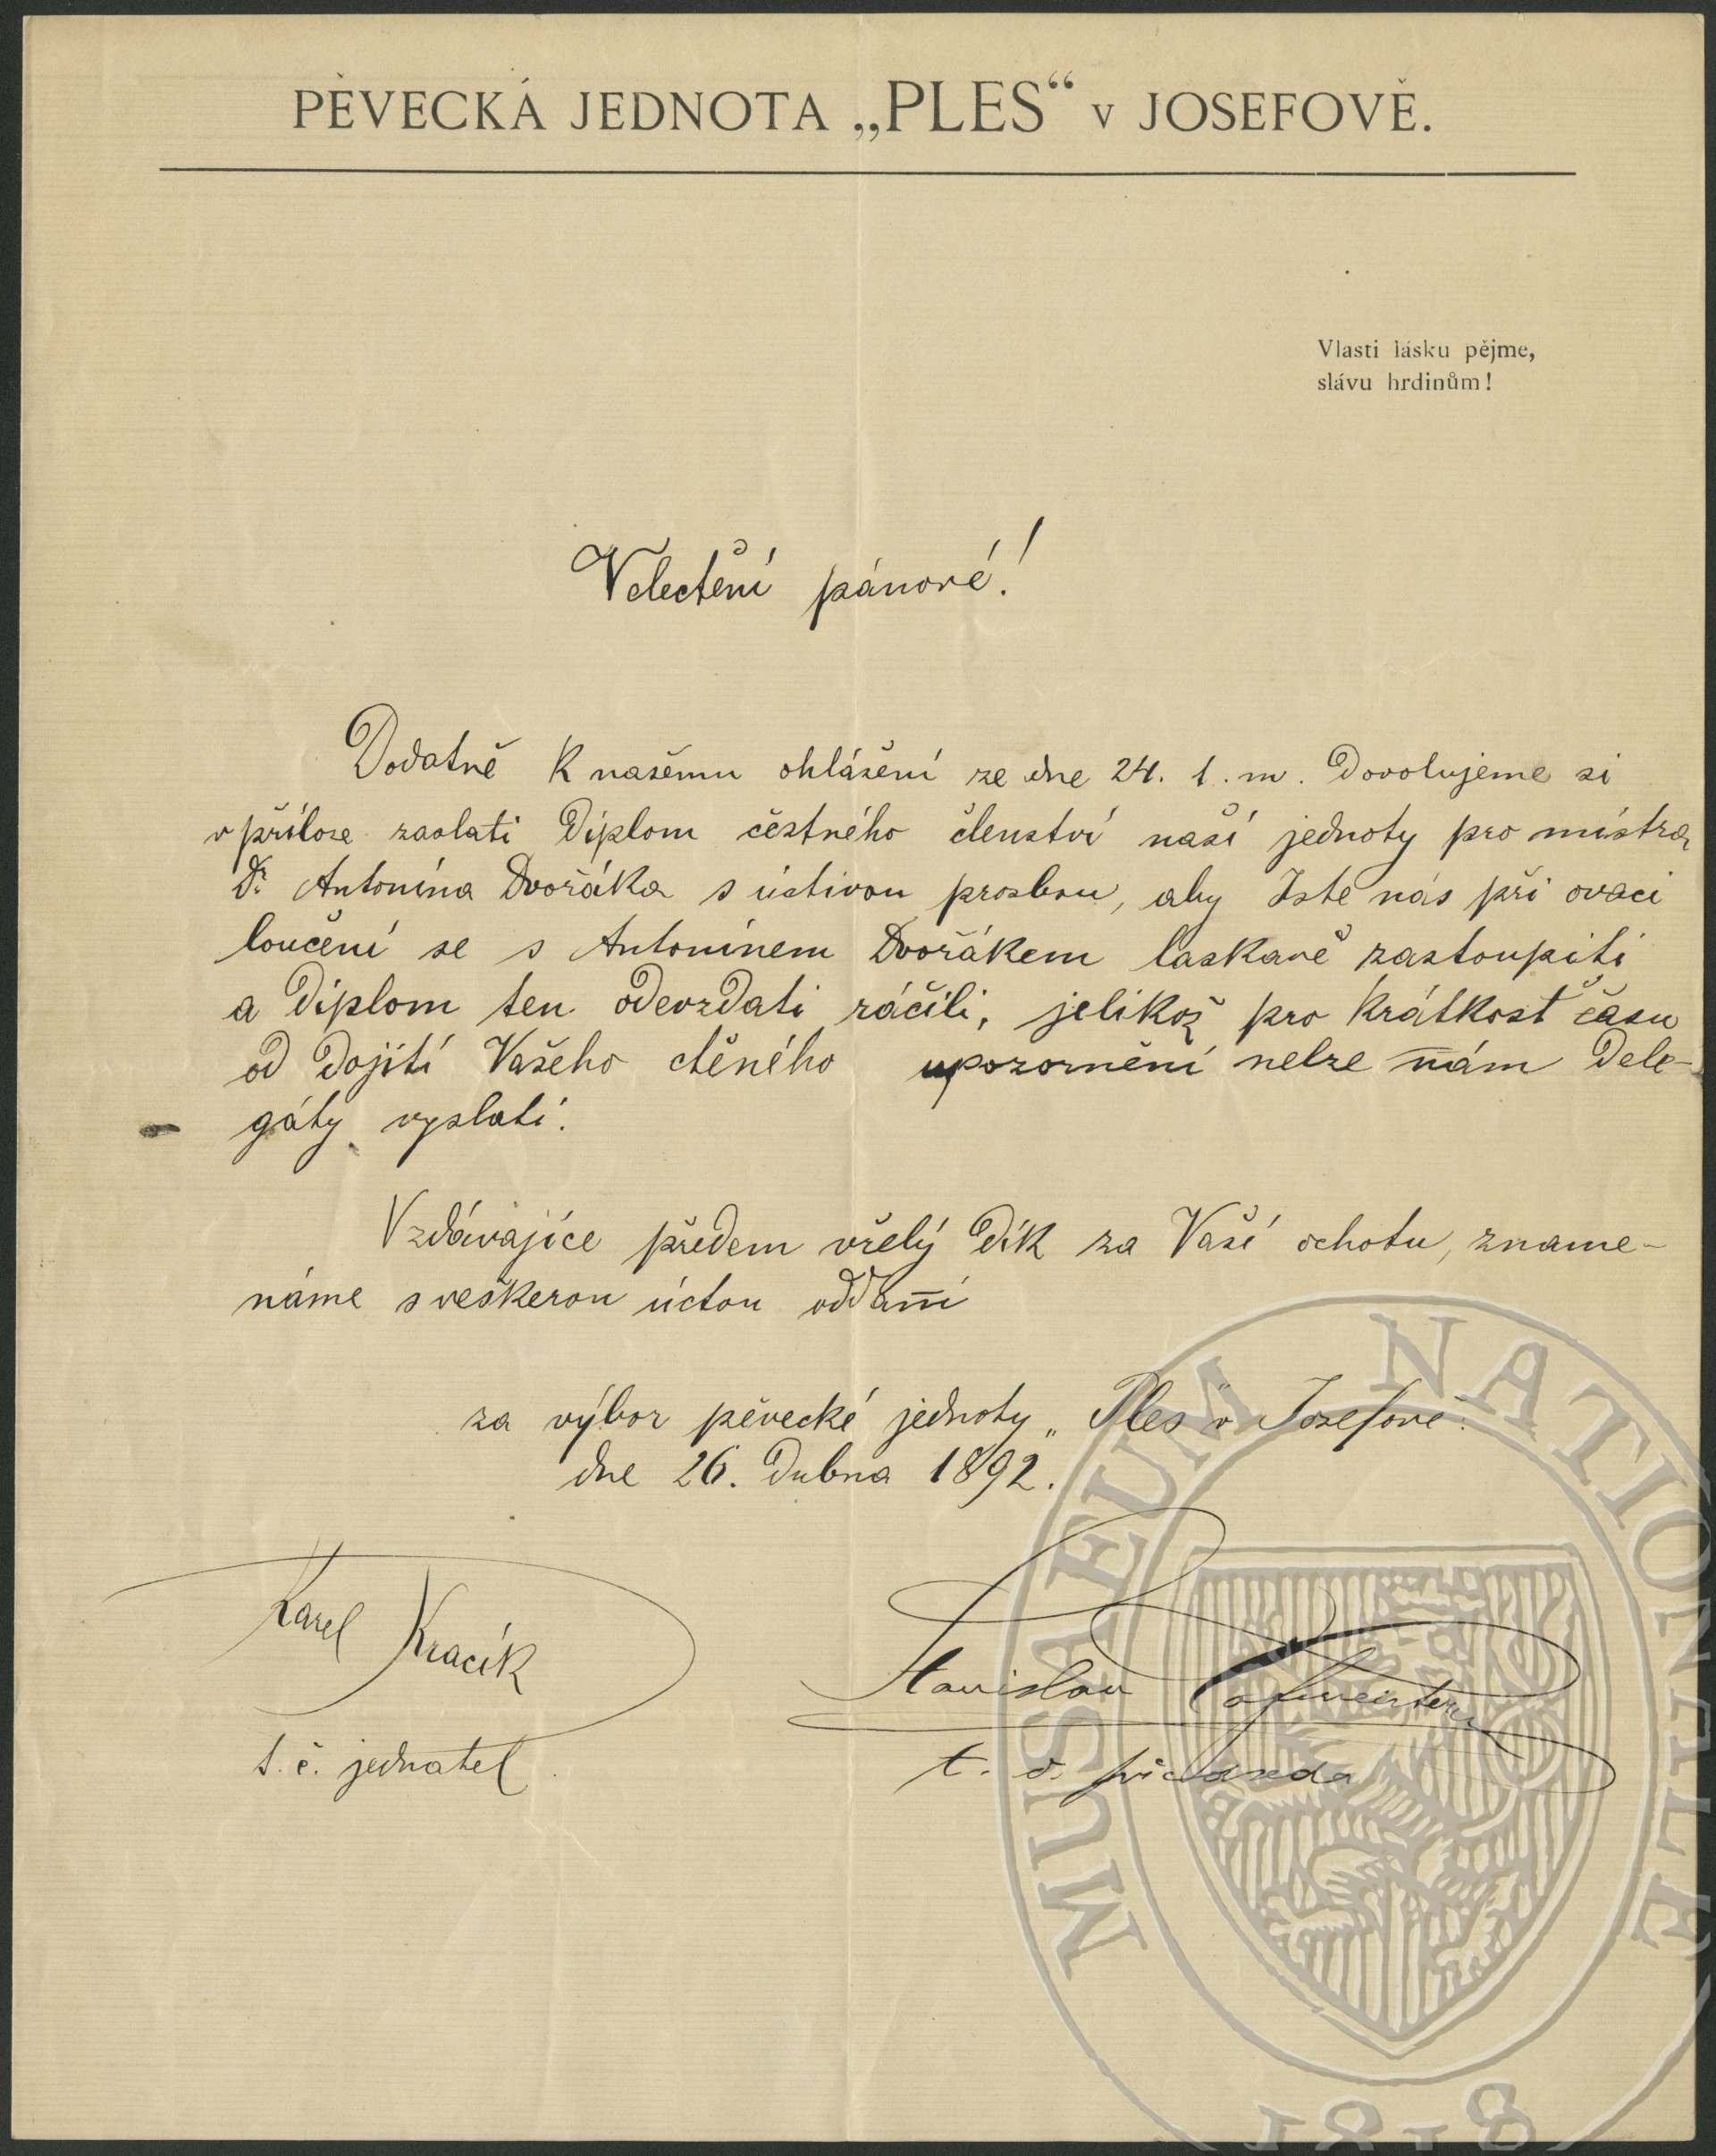 PĚVECKÁ JEDNOTA „PLES“ v JOSEFOVĚ.
Vlasti lásku pějme,
slávu hrdinům!
Velectění pánové!
Dodatně k našemu ohlášení ze dne 24. t. m. dovolujeme si
v příloze zaslati diplom čestného členství naší jednoty pro mistra
Dr. Antonína Dvořáka s úctivou prosbou, aby Jste nás při ovaci
loučení se s Antonínem Dvořákem laskavě zastoupiti
a diplom ten odevzdati ráčili, jelikož pro krátkost času
od dojití Vašeho ctěného upozornění nelze nám dele-
gáty vyslati.
Vzdávajíce předem vřelý dík za Vaší ochotu, zname-
náme s veškerou úctou oddaní
za výbor pěvecké jednoty „Ples“ v Josefově.
dne 26. dubna 1892.
Karel Kracík
t. č. jednatel.
Stanislav
t. č. předseda
MUSAEUM NATIONALE
1818